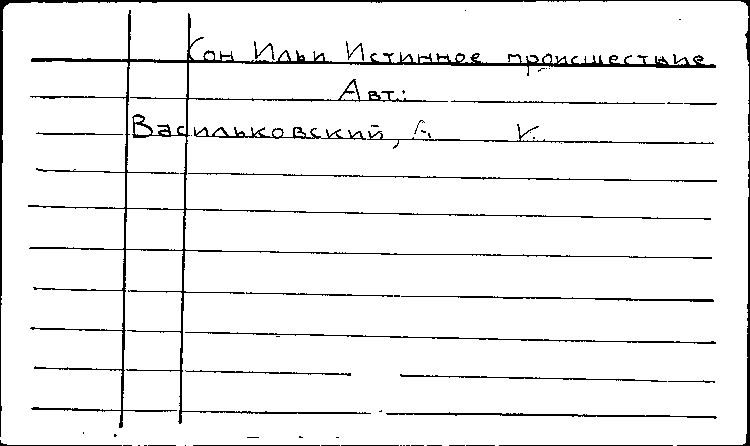 Сон Ильи Истинное происшествие
Авт.:
Васильковский, А. V.